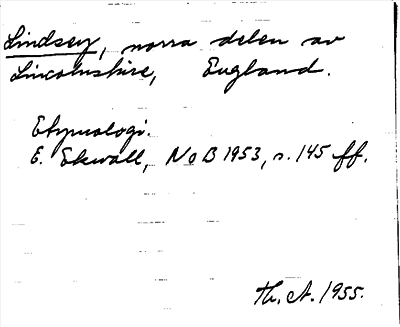 Lindsey, norra delen av
Lincolnshire, England.
Etymologi.
E. Ekwall, NoB 1953, s. 145 ff.
Th. A. 1955.